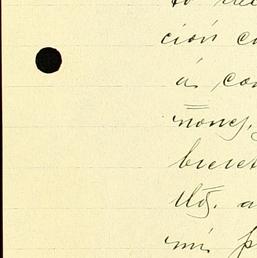 to
ción c
á con
nones,
breve
Ud. a
mi p